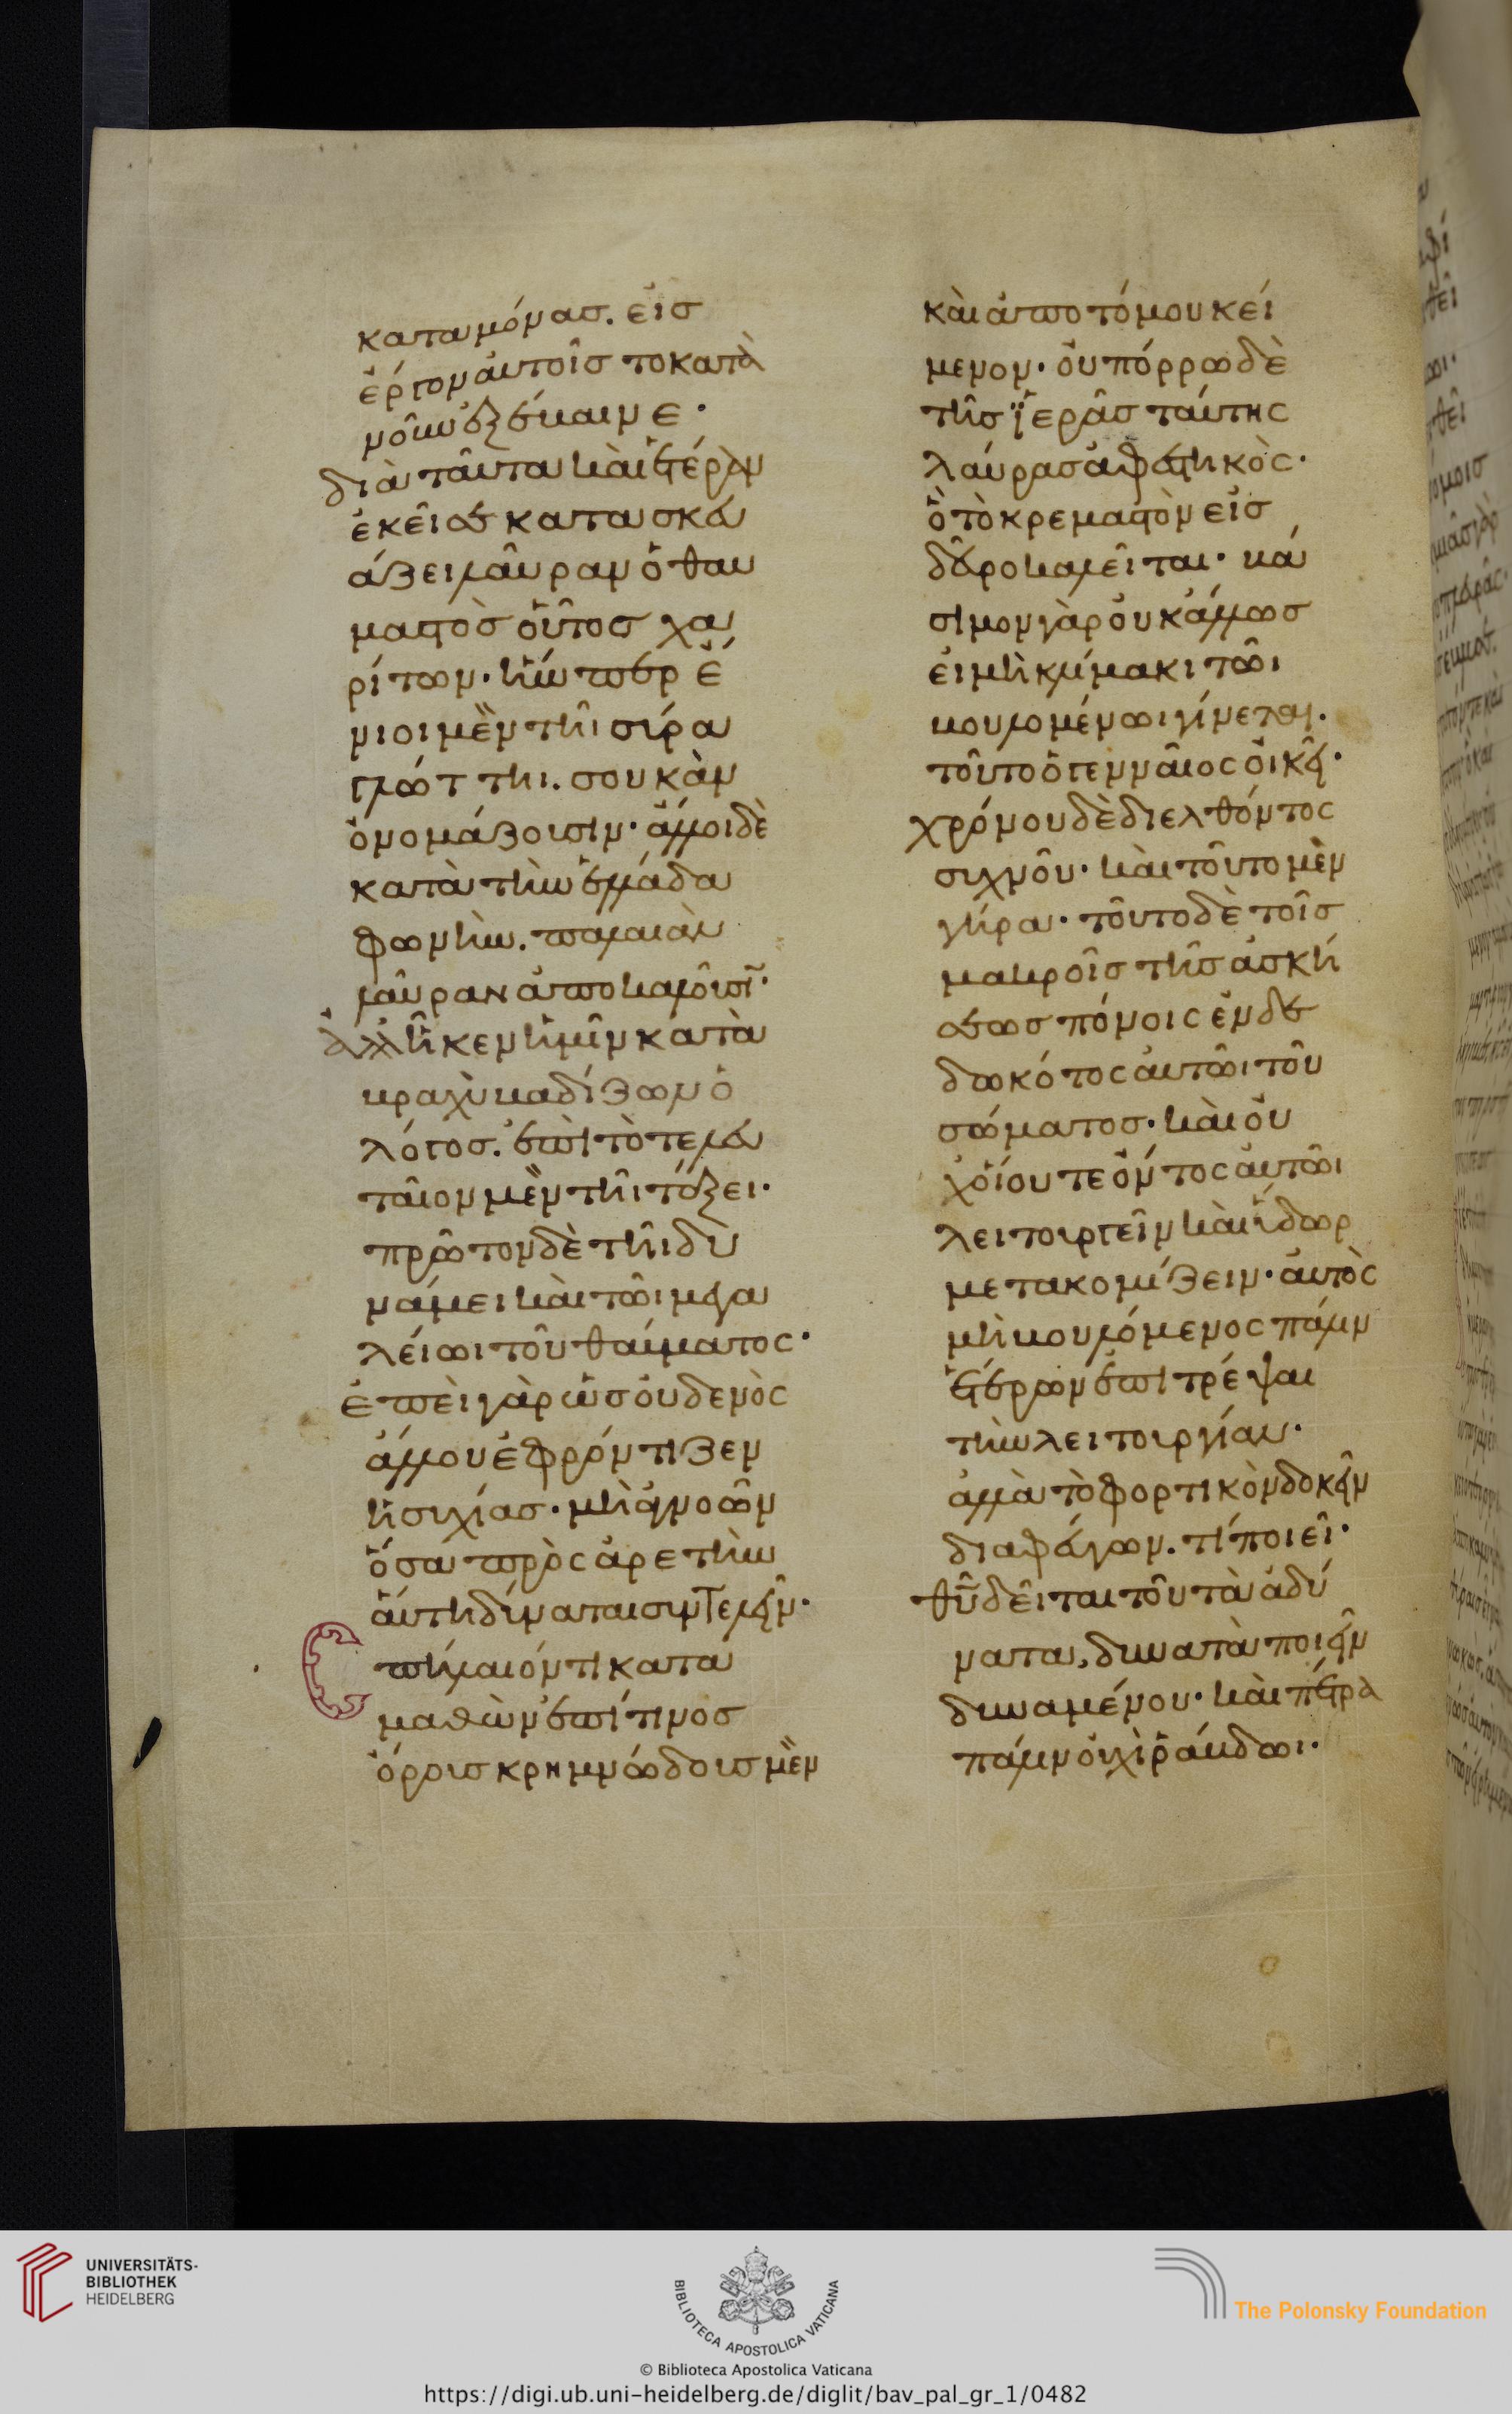 καταμόνας. εἰσ
ἔργον αὐτοῖσ το κατὰ
νοῦν ἐξέβαινε·
διὰ ταῦτα καὶ ἑτέραν
ἐκεῖσε κατασκευ
άζει λαύραν ὁ θαυ
μαστὸσ οὗτοσ χα
ρίτων· ἣν περ ἔ
νιοι μὲν τῆι σύρα
γλώττηι. σουκὰν
ὀνομάζουσιν· ἄλλοι δὲ
κατὰ τὴν ἑλλάδα
φωνὴν. παλαιὰν
λαύραν ἀποκαλοῦσι·
ἀλλ' ἧκεν ἡμῖν κατὰ
βραχὺ βαδίζων ὁ
λόγοσ. ἐπὶ τὸ τελευ
ταῖον μὲν τῆι τάξει·
πρῶτον δὲ τῆι δυ
νάμει καὶ τῶι μεγα
λείωι τοῦ θαύματος·
ἐπεὶ γὰρ ὡσ οὐδενὸς
ἄλλου ἐφρόντιζεν
ἡσυχίασ· μὴ ἀγνοῶν
ὅσα πρὸς ἀρετὴν
αὕτη δύναται συντελεῖν·
σπήλαιόν τι κατα
μαθὼν ἐπί τινοσ
ὄρουσ κρημνώδουσ μὲν
καὶ ἀποτόμου κεί
μενον· οὐ πόρρω δὲ
τῆσ ἱερᾶσ ταύτης
λαύρασ ἀφεστηκὸς·
ὃ τὸ κρεμαστὸν εἰσ
δεῦρο καλεῖται· βά
σιμον γὰρ οὐκ ἄλλωσ
εἰ μὴ κλίμακι τῶι
βουλομένωι γίνεται.
τοῦτο ὁ γενναῖος οἰκεῖ·
χρόνου δὲ διελθόντος
συχνοῦ· καὶ τοῦτο μὲν
γήρα· τοῦτο δὲ τοῖσ
μακροῖσ τῆσ ἀσκή
σεωσ πόνοις ἐνδε
δωκότος αὐτῶι τοῦ
σώματοσ· καὶ οὐ
χ' οἵου τε ὄντος αὐτῶι
λειτουργεῖν καὶ ὕδωρ
μετακομίζειν· αὐτὸς
μὴ βουλόμενος πάλιν
ἑτέρων ἐπιτρέψαι
τὴν λειτουργίαν·
ἀλλὰ τὸ φορτικὸν δοκεῖν
διαφεύγων. τί ποιεῖ·
θῦ δεῖται τοῦ τὰ ἀδύ
νατα, δυνατὰ ποιεῖν
δυναμένου· καὶ πέτρα
πάλιν οὐχὶ ῥάβδωι·
UNIVERSITÄTS-
BIBLIOTHEK
HEIDELBERG
BIBLIOTECA APOSTOLICA VATICANA
The Polonsky Foundation
© Biblioteca Apostolica Vaticana
https://digi.ub.uni-heidelberg.de/diglit/bav_pal_gr_1/0482